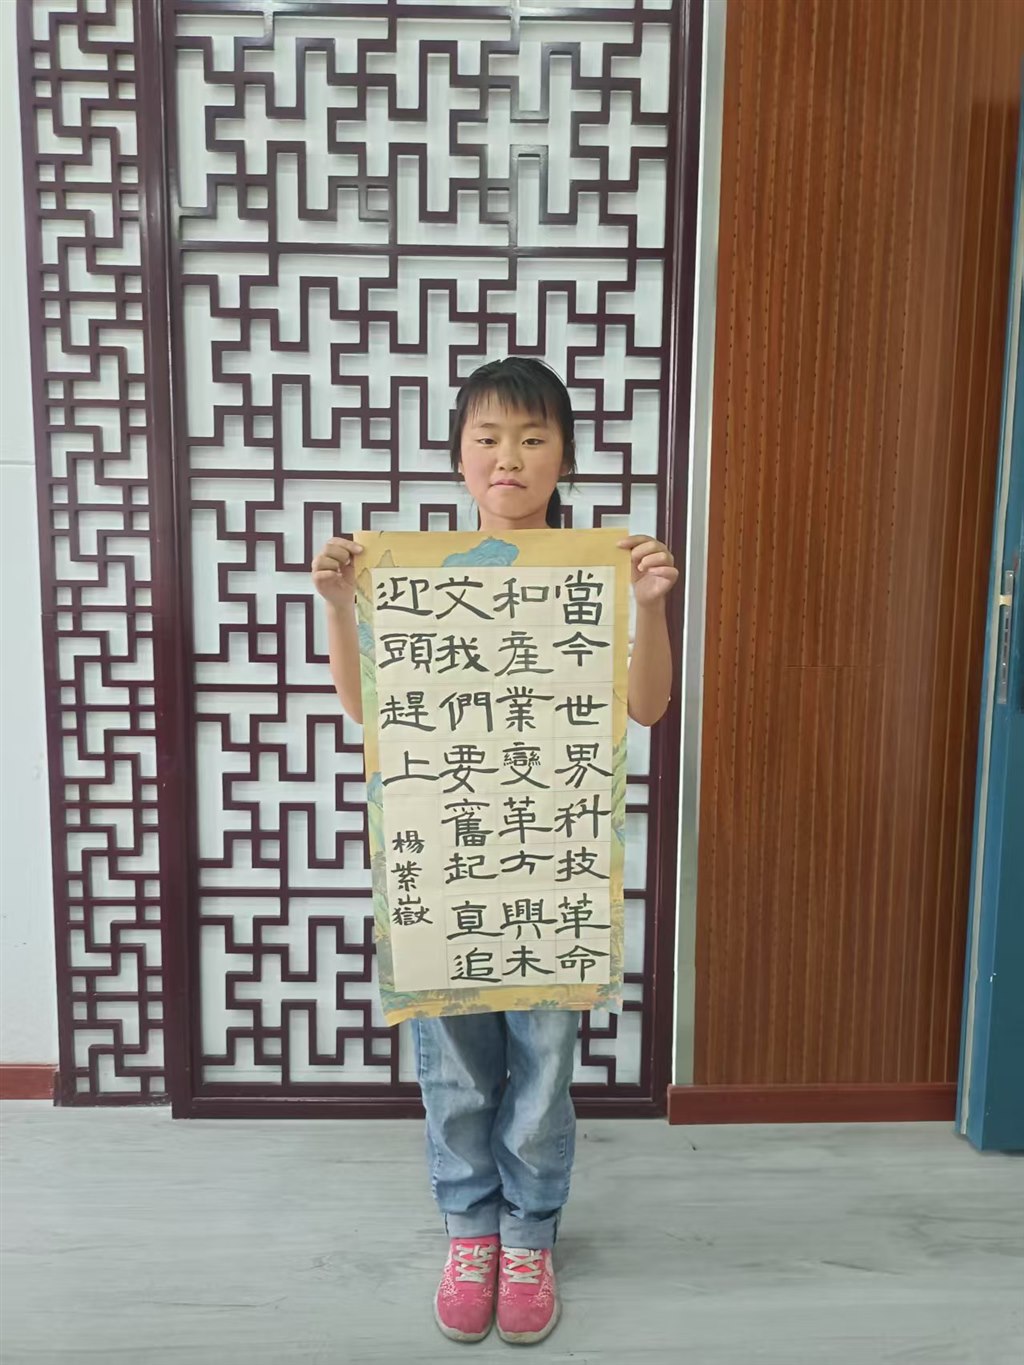 當今世界科技革命
和産業變革方興未
艾我們要奮起直追
迎頭趕上
楊紫嶽